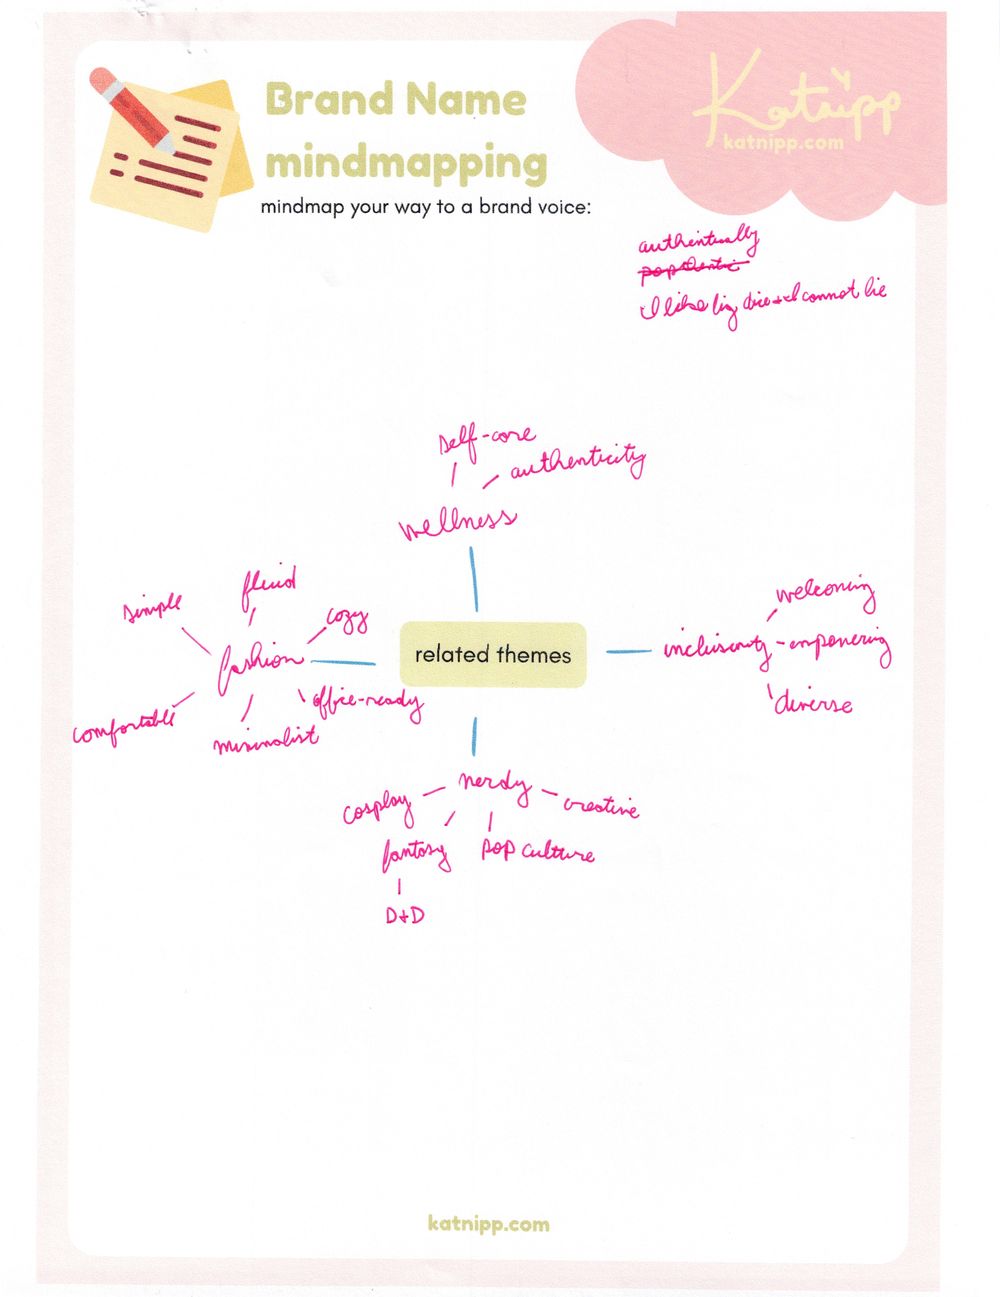 Brand Name
mindmapping
mindmap your way to a brand voice:
Katnipp
katnipp.com
authentically
I like big dice + I cannot lie
self-care
authenticity
wellness
simple
fluid
cozy
fashion
comfortable
minimalist
office-ready
related themes
welcoming
inclusivity - empowering
diverse
nerdy
cosplay
creative
fantasy
pop culture
D+D
katnipp.com